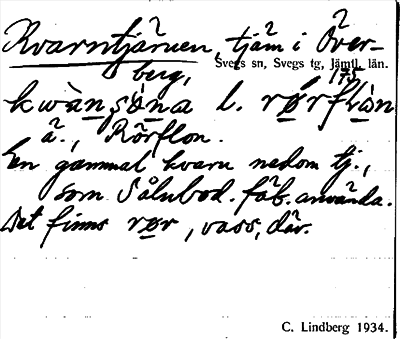 Kvarntjärnen, tjärn i Över-
berg,
Svegs sn, Svegs tg, Jämtl. län.
175
kwàn,sø̀na l. rørflòn
ä., Rörflon.
En gammal kvarn nedom tj.,
som Sålnbod. fäb. använda.
Det finns rør, vass, där.
C. Lindberg 1934.